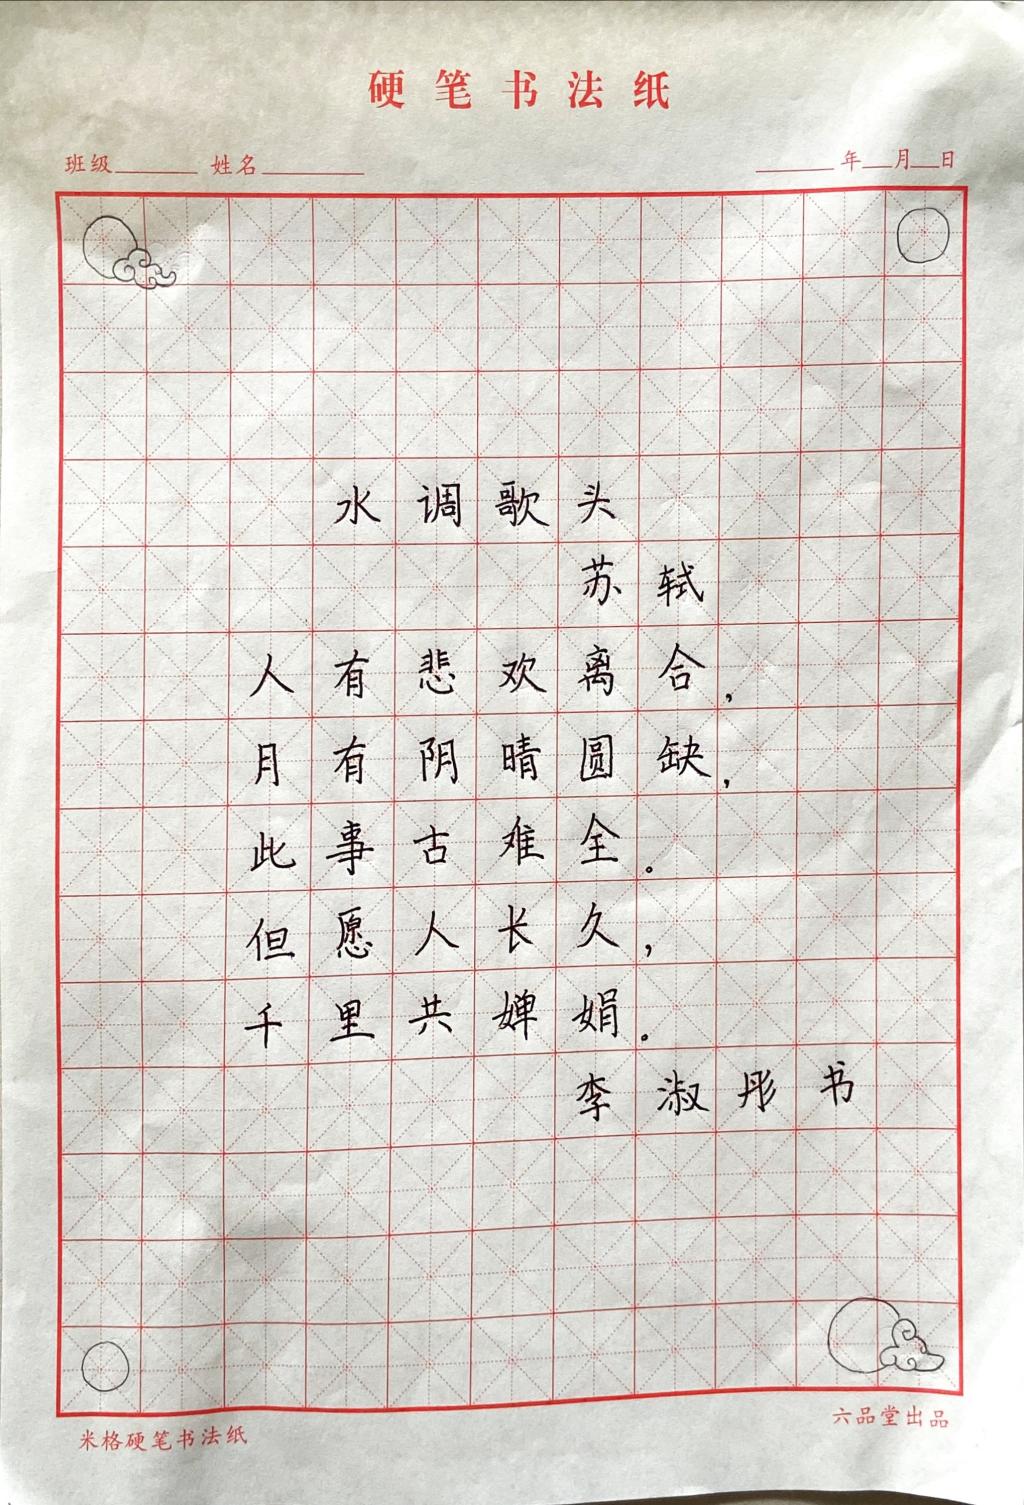 硬笔书法纸
班级______ 姓名________ ______年__月__日
水调歌头
苏轼
人有悲欢离合，
月有阴晴圆缺，
此事古难全。
但愿人长久，
千里共婵娟。
李淑彤书
米格硬笔书法纸 六品堂出品